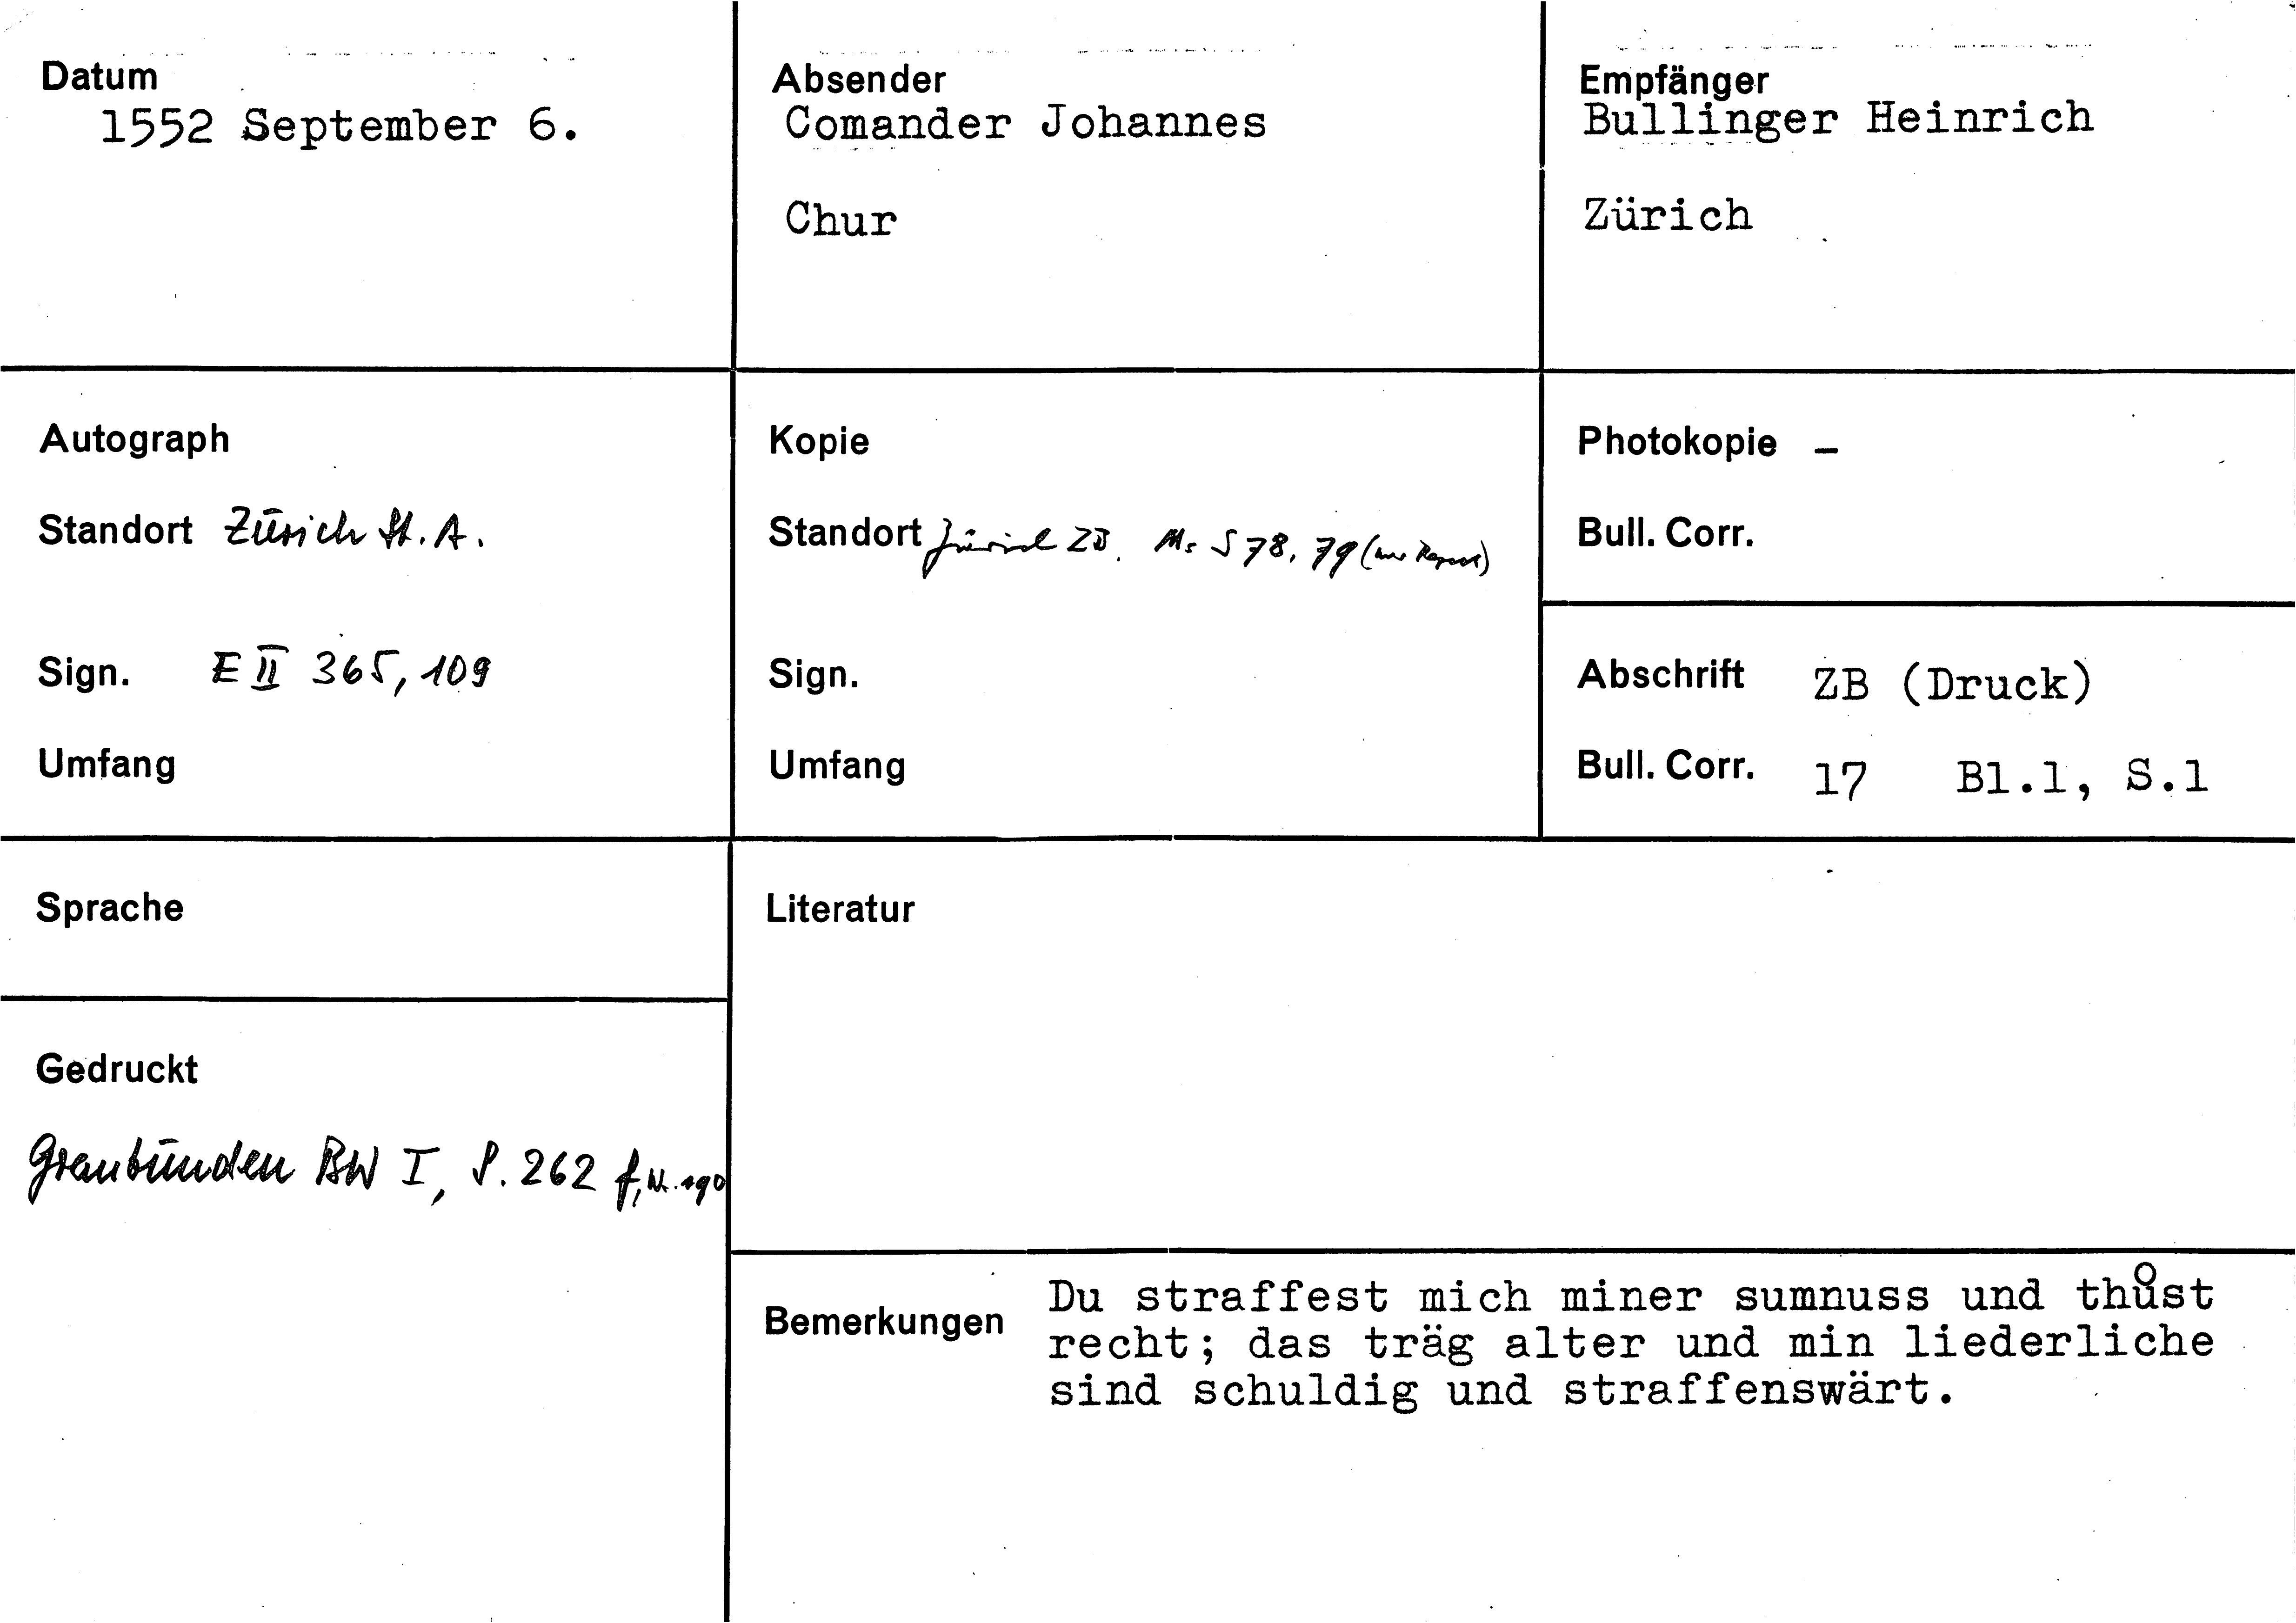 Datum
1552 September 6.
Absender
Comander Johannes
Chur
Empfänger
Bullinger Heinrich
Zürich
Autograph
Standort Zürich St. A.
Sign. E II 365, 109
Umfang
Kopie
Standort Zürich ZB. Ms S 78, 79 (nur Regest)
Sign.
Umfang
Photokopie –
Bull. Corr.
Abschrift ZB (Druck)
Bull. Corr. 17 Bl.1, S.1
Sprache
Gedruckt
Graubünden BW I, S. 262 f, Nr. 190
Literatur
Bemerkungen Du straffest mich miner sumnuss und thůst
recht; das träg alter und min liederliche
sind schuldig und straffenswärt.